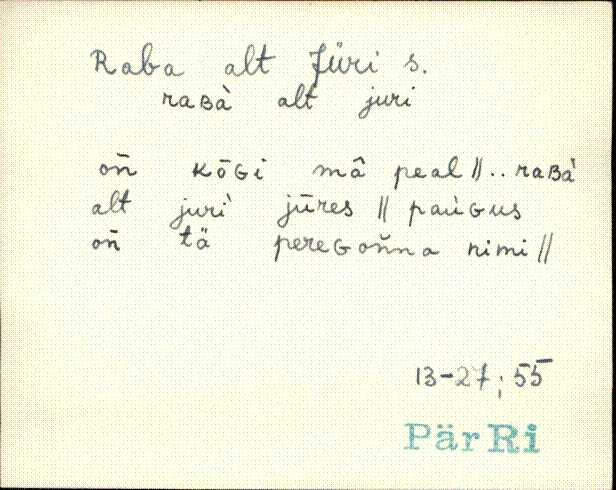 Raba alt Jüri s.
raʙà alt juri
on̄ κōɢi mâ peal ‖ .. raʙà
alt juri̇̀ jūres ‖ paùɢus
on̄ tä pereɢon̆na nimi ‖
13-27; 55
PärRi